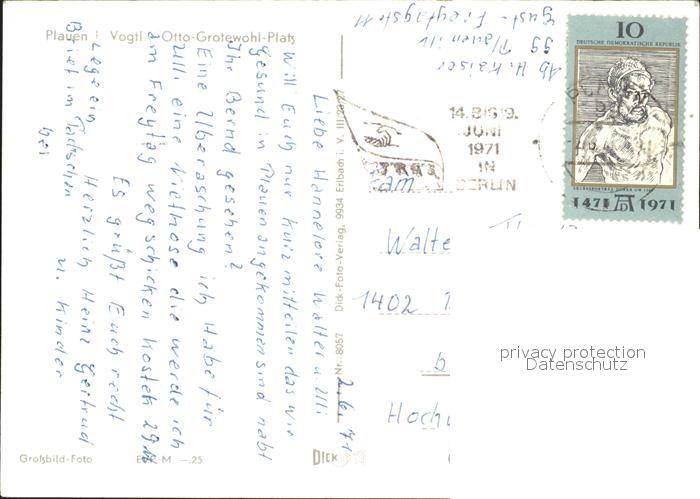 Plauen i. Vogtl. Otto-Grotewohl-Platz
Ab H. Kaiser
99 Plauen i/V
Gust-Freytagstr 11
10
DEUTSCHE DEMOKRATISCHE REPUBLIK
1471 1971
14. BIS 19.
JUNI
1971
IN
BERLIN
2.6.71
Liebe Hannelore Walter u. Ulli
Will Euch nur kurz mitteilen das wir
gesund in Plauen angekommen sind habt
Ihr Bernd gesehen?
Eine Überaschung ich habe für
Ulli eine Niethose die werde ich
am Freytag wegschicken kostet 29 M
Es grüßt Euch recht
Herzlich Heinz Gertrud
u. Kinder
Lege ein
Brief im Täschen
bei
Fam
Walte
1402
b
Hochu
Dick-Foto-Verlag, 9934 Erlbach i. V. III/26/
Nr. 8057
DICK
Großbild-Foto EVP M —.25
privacy protection
Datenschutz